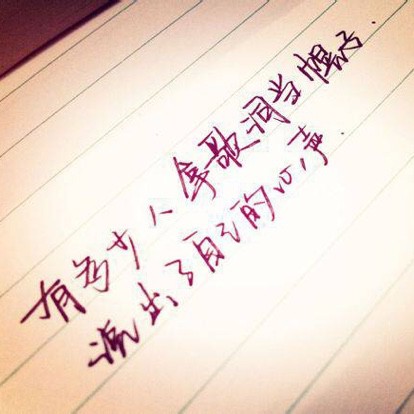 有多少人拿歌词当幌子
说出了自己的心声